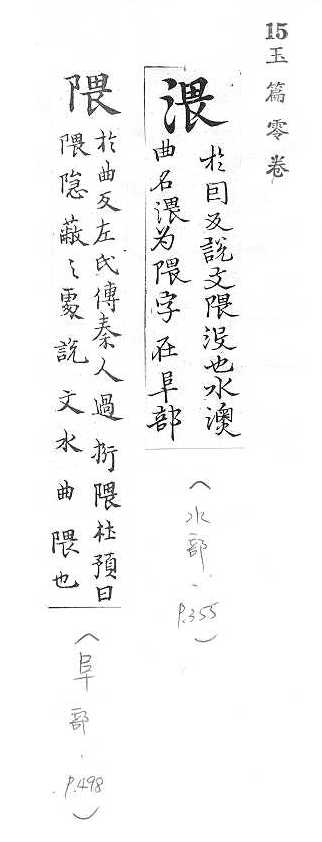 15玉篇零卷
渨
於囙反說文隈没也水澳
曲名渨为隈字在阜部
(水部、P.355)
隈
於曲反左氏傳秦人過析隈杜預曰
隈隐蔽之處說文水曲隈也
(阜部.P.498)